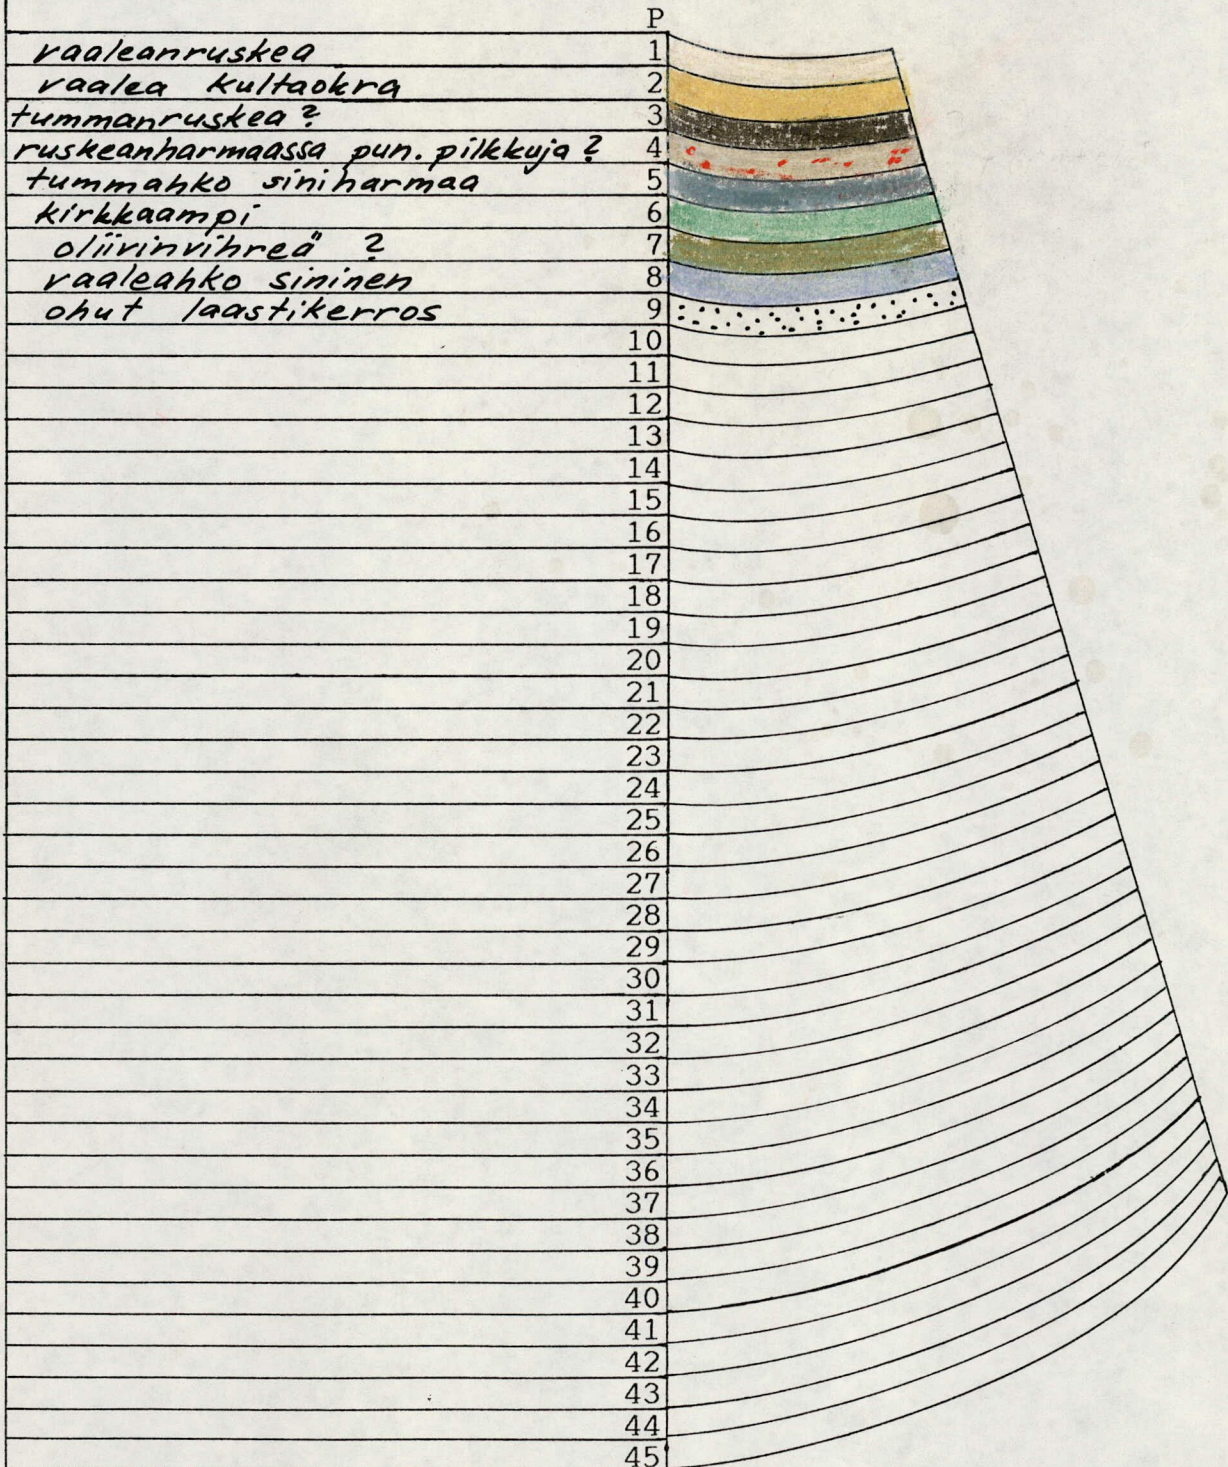 P
vaaleanruskea 1
vaalea kultaokra 2
tummanruskea? 3
ruskeanharmaassa pun. pilkkuja? 4
tummahko siniharmaa 5
kirkkaampi 6
oliivinvihreä ? 7
vaaleahko sininen 8
ohut laastikerros 9
10
11
12
13
14
15
16
17
18
19
20
21
22
23
24
25
26
27
28
29
30
31
32
33
34
35
36
37
38
39
40
41
42
43
44
45